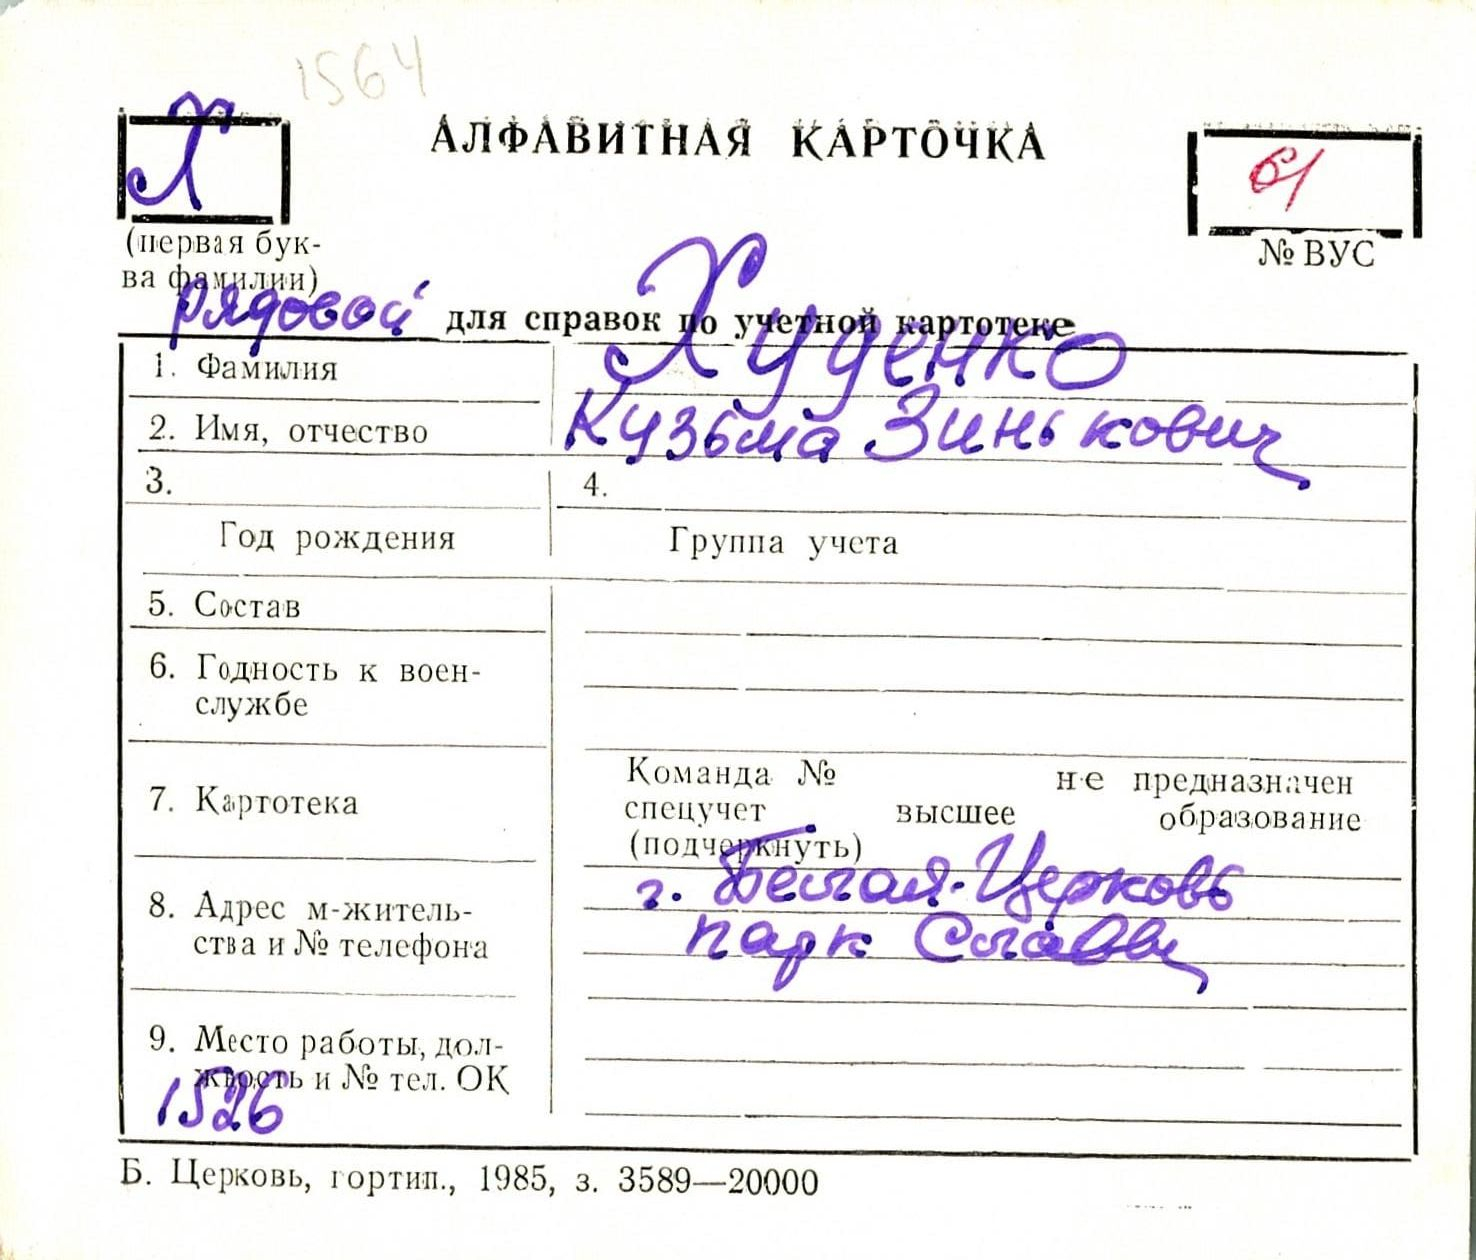 1564
Х
АЛФАВИТНАЯ КАРТОЧКА
61
(первая бук-
ва фамилии)
№ ВУС
рядовой для справок по учетной картотеке
1. Фамилия Худенко
2. Имя, отчество Кузьма Зинькович
3. 4.
Год рождения Группа учета
5. Состав
6. Годность к воен-
службе
7. Картотека
Команда № не предназначен
спецучет высшее образование
(подчеркнуть)
8. Адрес м-житель-
ства и № телефона
г. Белая-Церковь
парк Славы
9. Место работы, дол-
жность и № тел. ОК
1526
Б. Церковь, гортип., 1985, з. 3589—20000